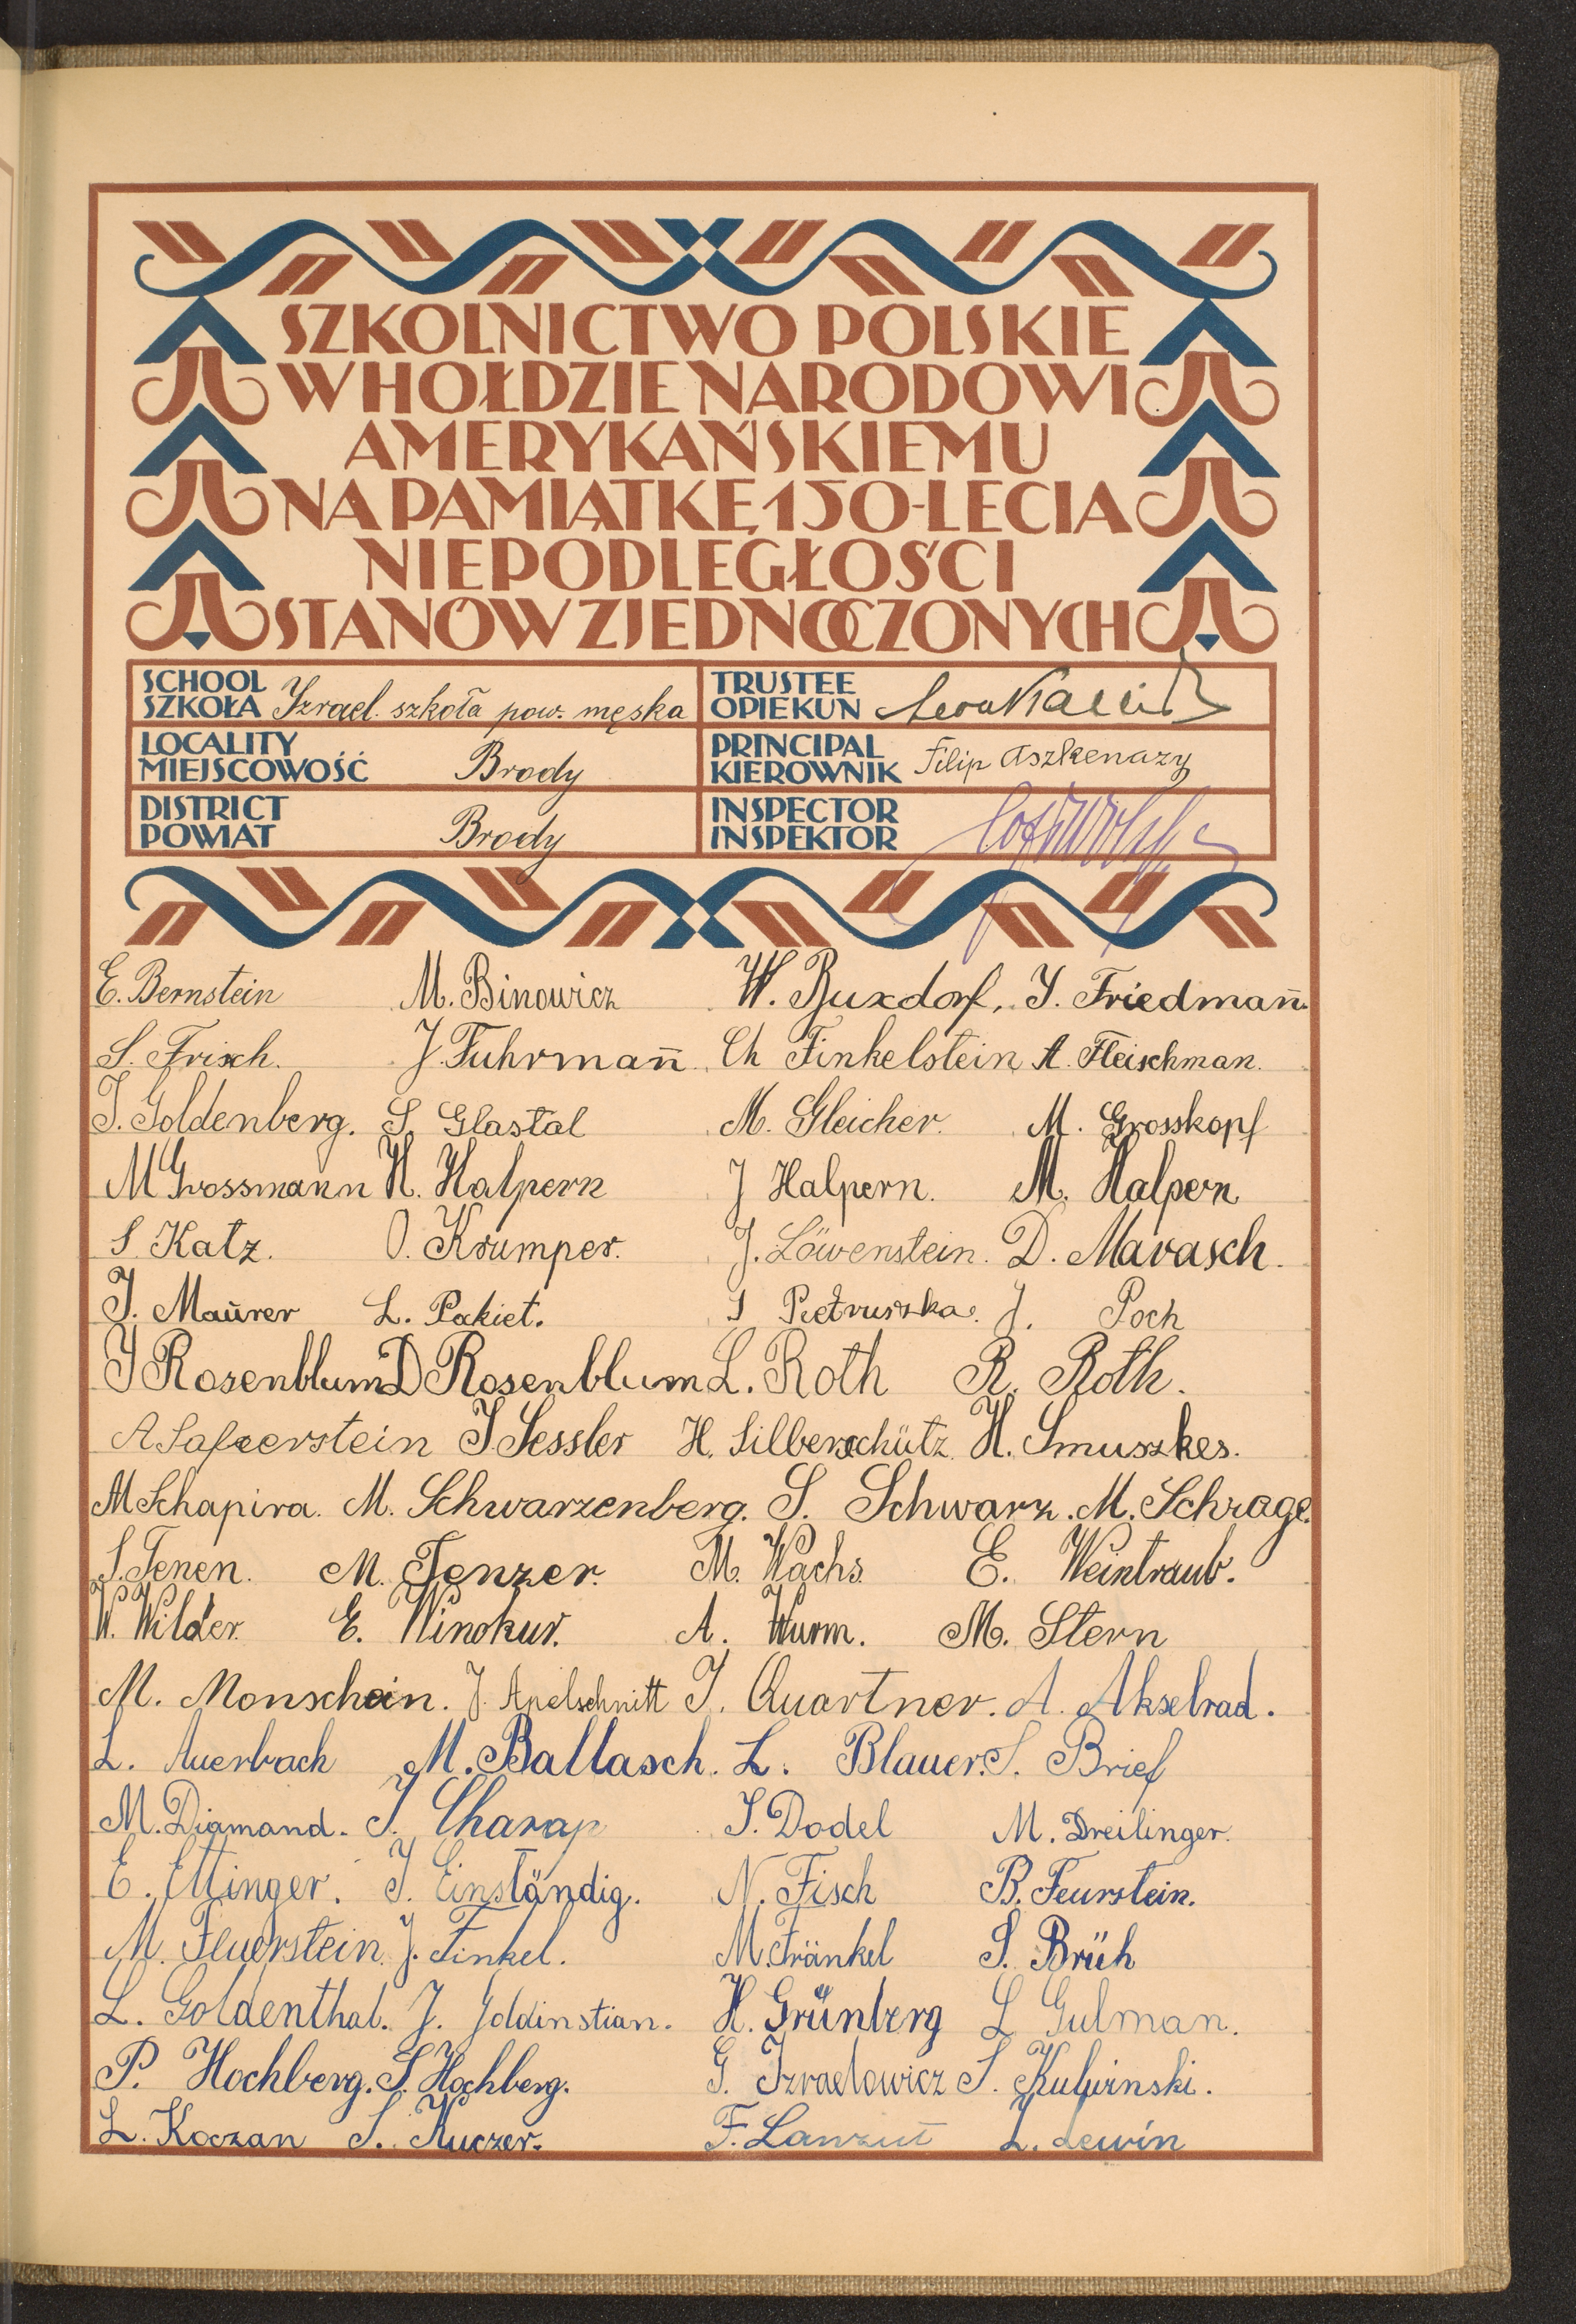 SZKOLNICTWO POLSKIE
W HOŁDZIE NARODOWI
AMERYKAŃSKIEMU
NA PAMIĄTKĘ 150-LECIA
NIEPODLEGŁOŚCI
STANÓW ZJEDNOCZONYCH
SCHOOL
SZKOŁA Izrael. szkoła pow. męska
TRUSTEE
OPIEKUN
LOCALITY
MIEJSCOWOŚĆ Brody
PRINCIPAL
KIEROWNIK Filip Aszkenazy
DISTRICT
POWIAT Brody
INSPECTOR
INSPEKTOR
E. Bernstein M. Binowicz W. Buxdorf, J. Friedman̄.
S. Frisch. J. Fuhrman̄. Ch Finkelstein A. Fleischman.
J. Goldenberg. S. Glastal M. Gleicher. M. Grosskopf
M Grossmann H. Halpern J Halpern. M. Halpern
S. Katz. O. Krumper. J. Löwenstein. D. Marasch.
J. Maurer L. Pakiet. S Pietruszka. J. Poch
J Rosenblum D Rosenblum L. Roth R. Roth.
A Safierstein J Sessler H. Silberschütz H. Smuszkes.
M Schapira. M. Schwarzenberg. S. Schwarz. M. Schrage.
S. Tenen. M. Tenzer. M. Wachs. E. Weintraub.
W. Wilder. E. Winokur. A. Wurm. M. Stern
M. Monschein. J. Apelschnitt J. Quartner. A. Akselrad.
L. Auerbach M. Ballasch. L. Blauer. S. Brief
M. Diamand. J. Charap J. Dodel M. Dreilinger.
E. Ettinger. J. Einständig. N. Fisch B. Feurstein.
M. Feuerstein. J. Finkel. M. Fränkel S. Brüh
L. Goldenthal. J. Goldinstian. H. Grünberg L Gulman.
P. Hochberg. S. Hochberg. G. Izraelowicz S. Kulwinski.
L. Koczan S. Kuczer. F. Lanzut L. Lewin